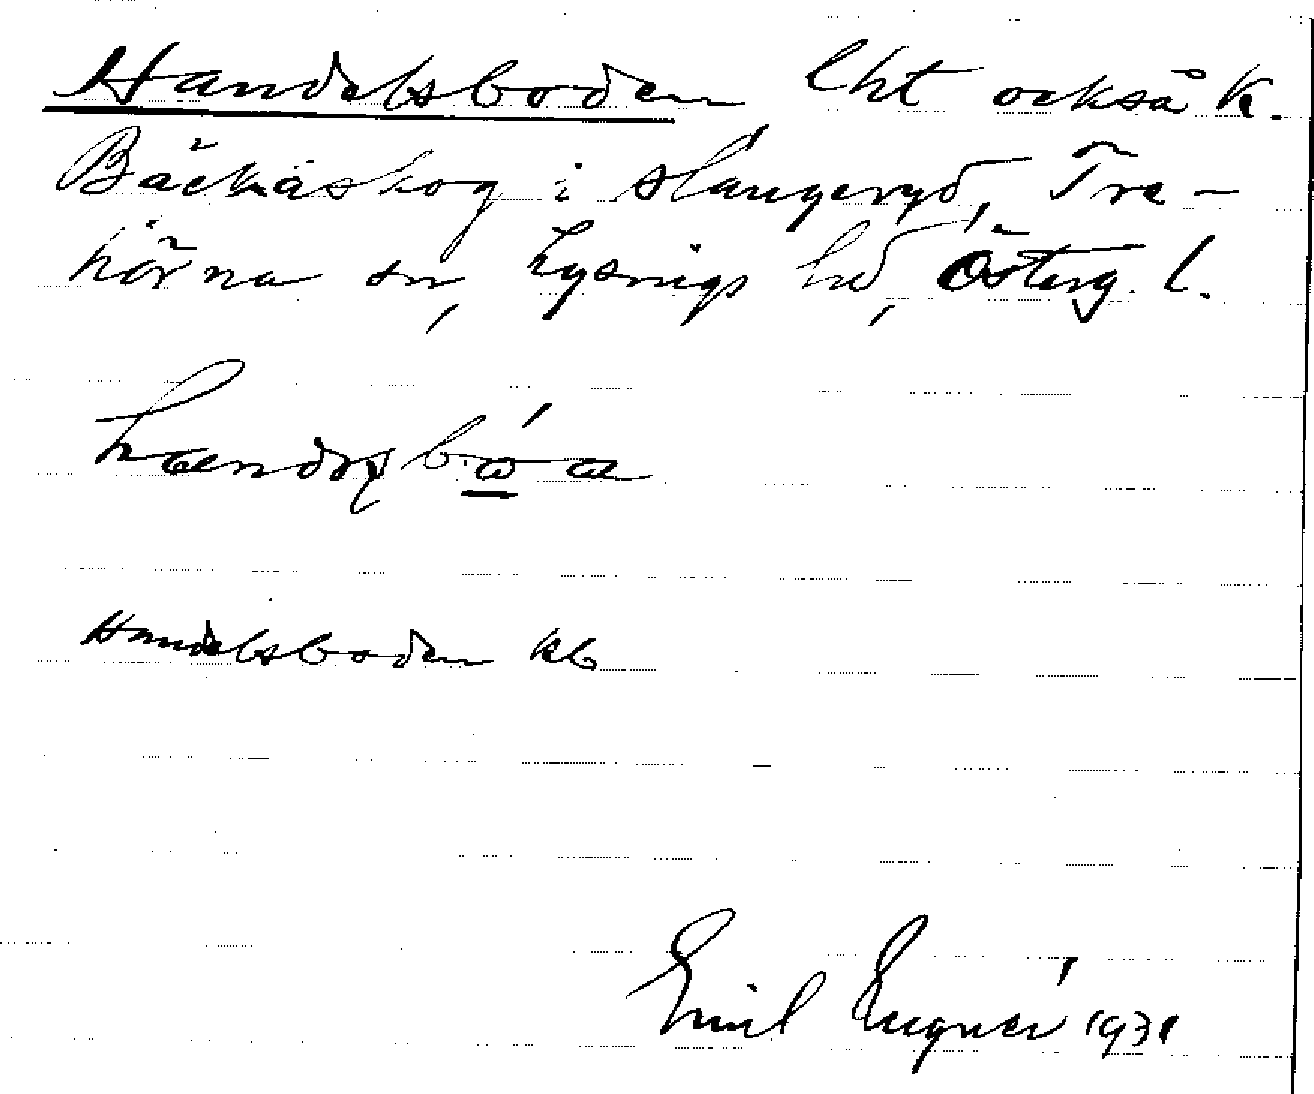 Handelsboden lht också k.
Bäckaskog i Slangeryd, Tre-
hörna sn, Lysings hd, Österg. l.
Handelsboden kb
Emil Lugnér 1931